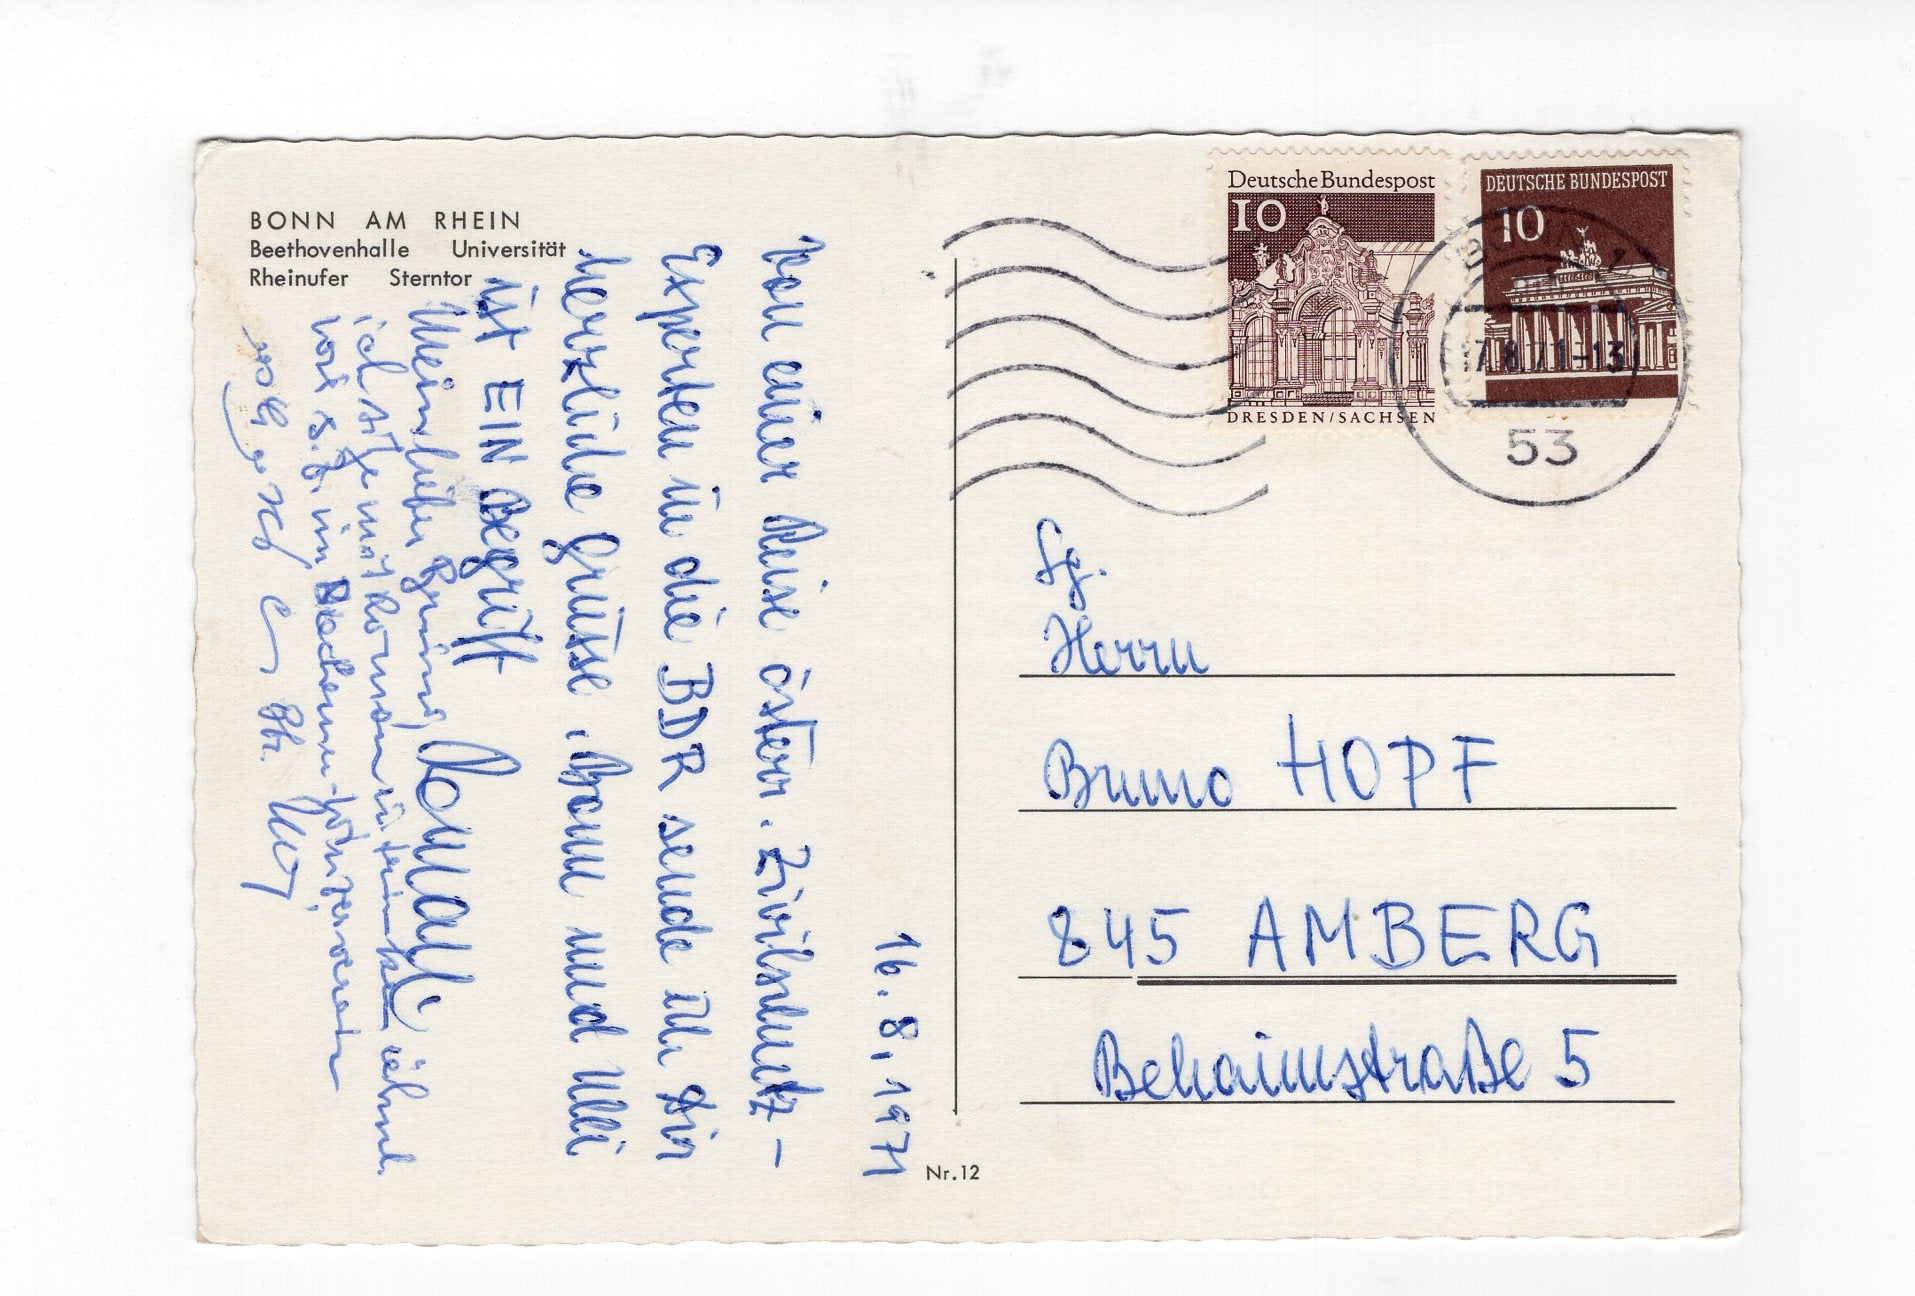 BONN AM RHEIN
Beethovenhalle Universität
Rheinufer Sterntor
16.8.1971
Von einer Reise österr. Zivilschutz-
Experten in die BDR sende ich Dir
herzliche Grüsse. Bonn und Ulli
ist EIN Begriff
Mein lieber Bruno,
ich sitze mit Roman u. trinke
vor
Nr. 12
Deutsche Bundespost
10
DRESDEN/SACHSEN
DEUTSCHE BUNDESPOST
10
17.8.71-13
53
Herrn
Bruno HOPF
845 AMBERG
Behaimstraße 5